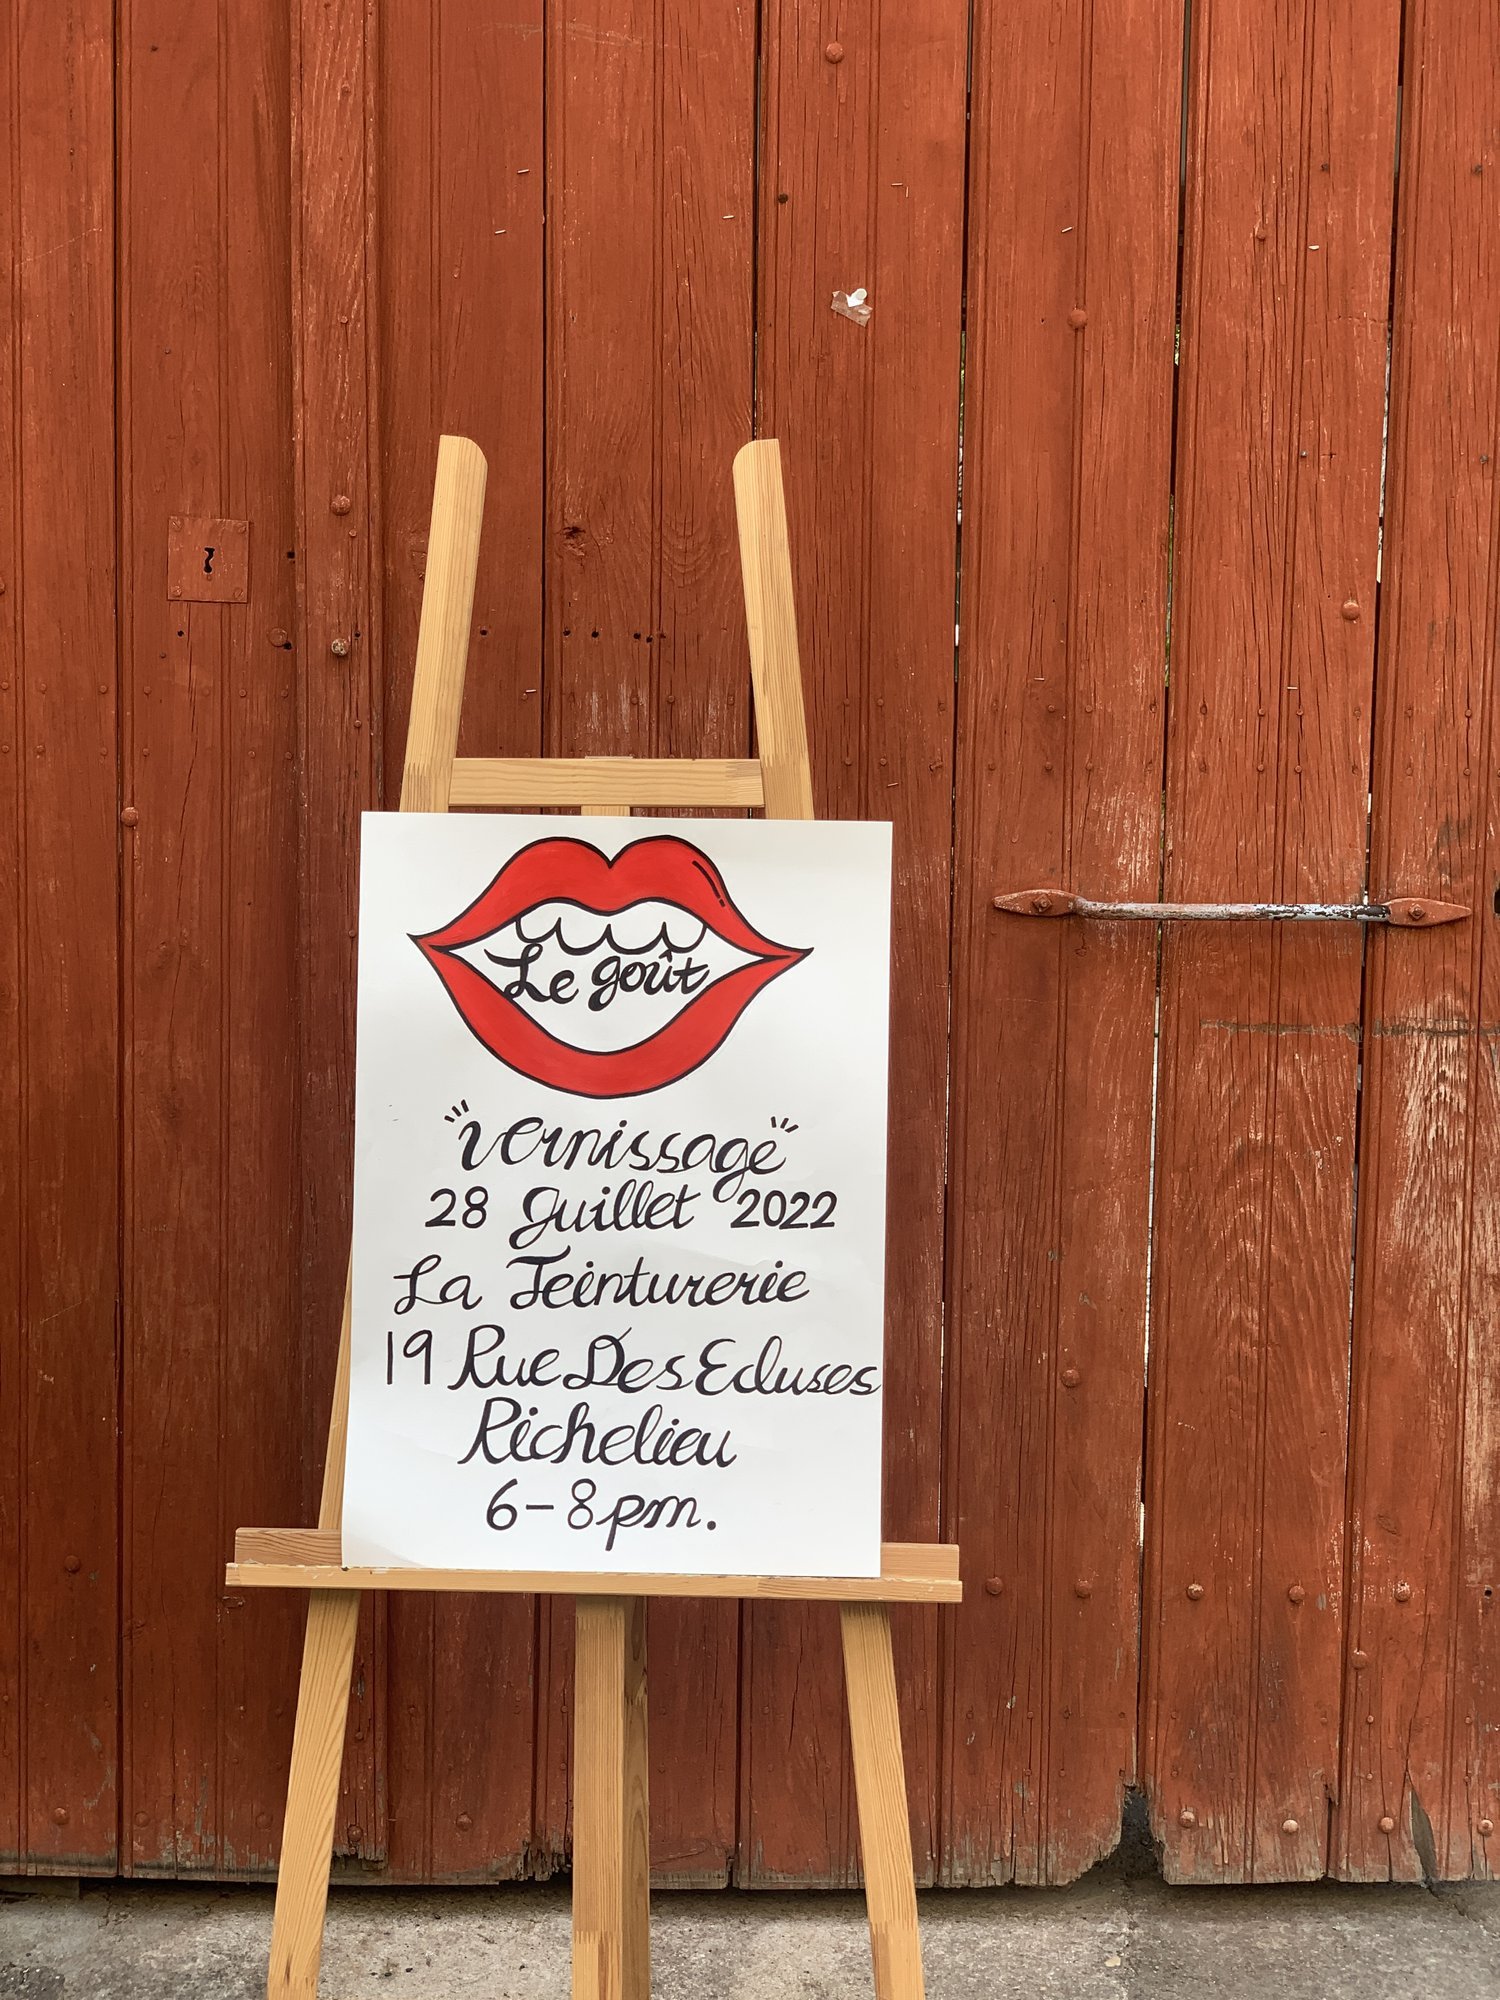 Le goût
"Vernissage"
28 Juillet 2022
La Teinturerie
19 Rue Des Ecluses
Richelieu
6-8pm.